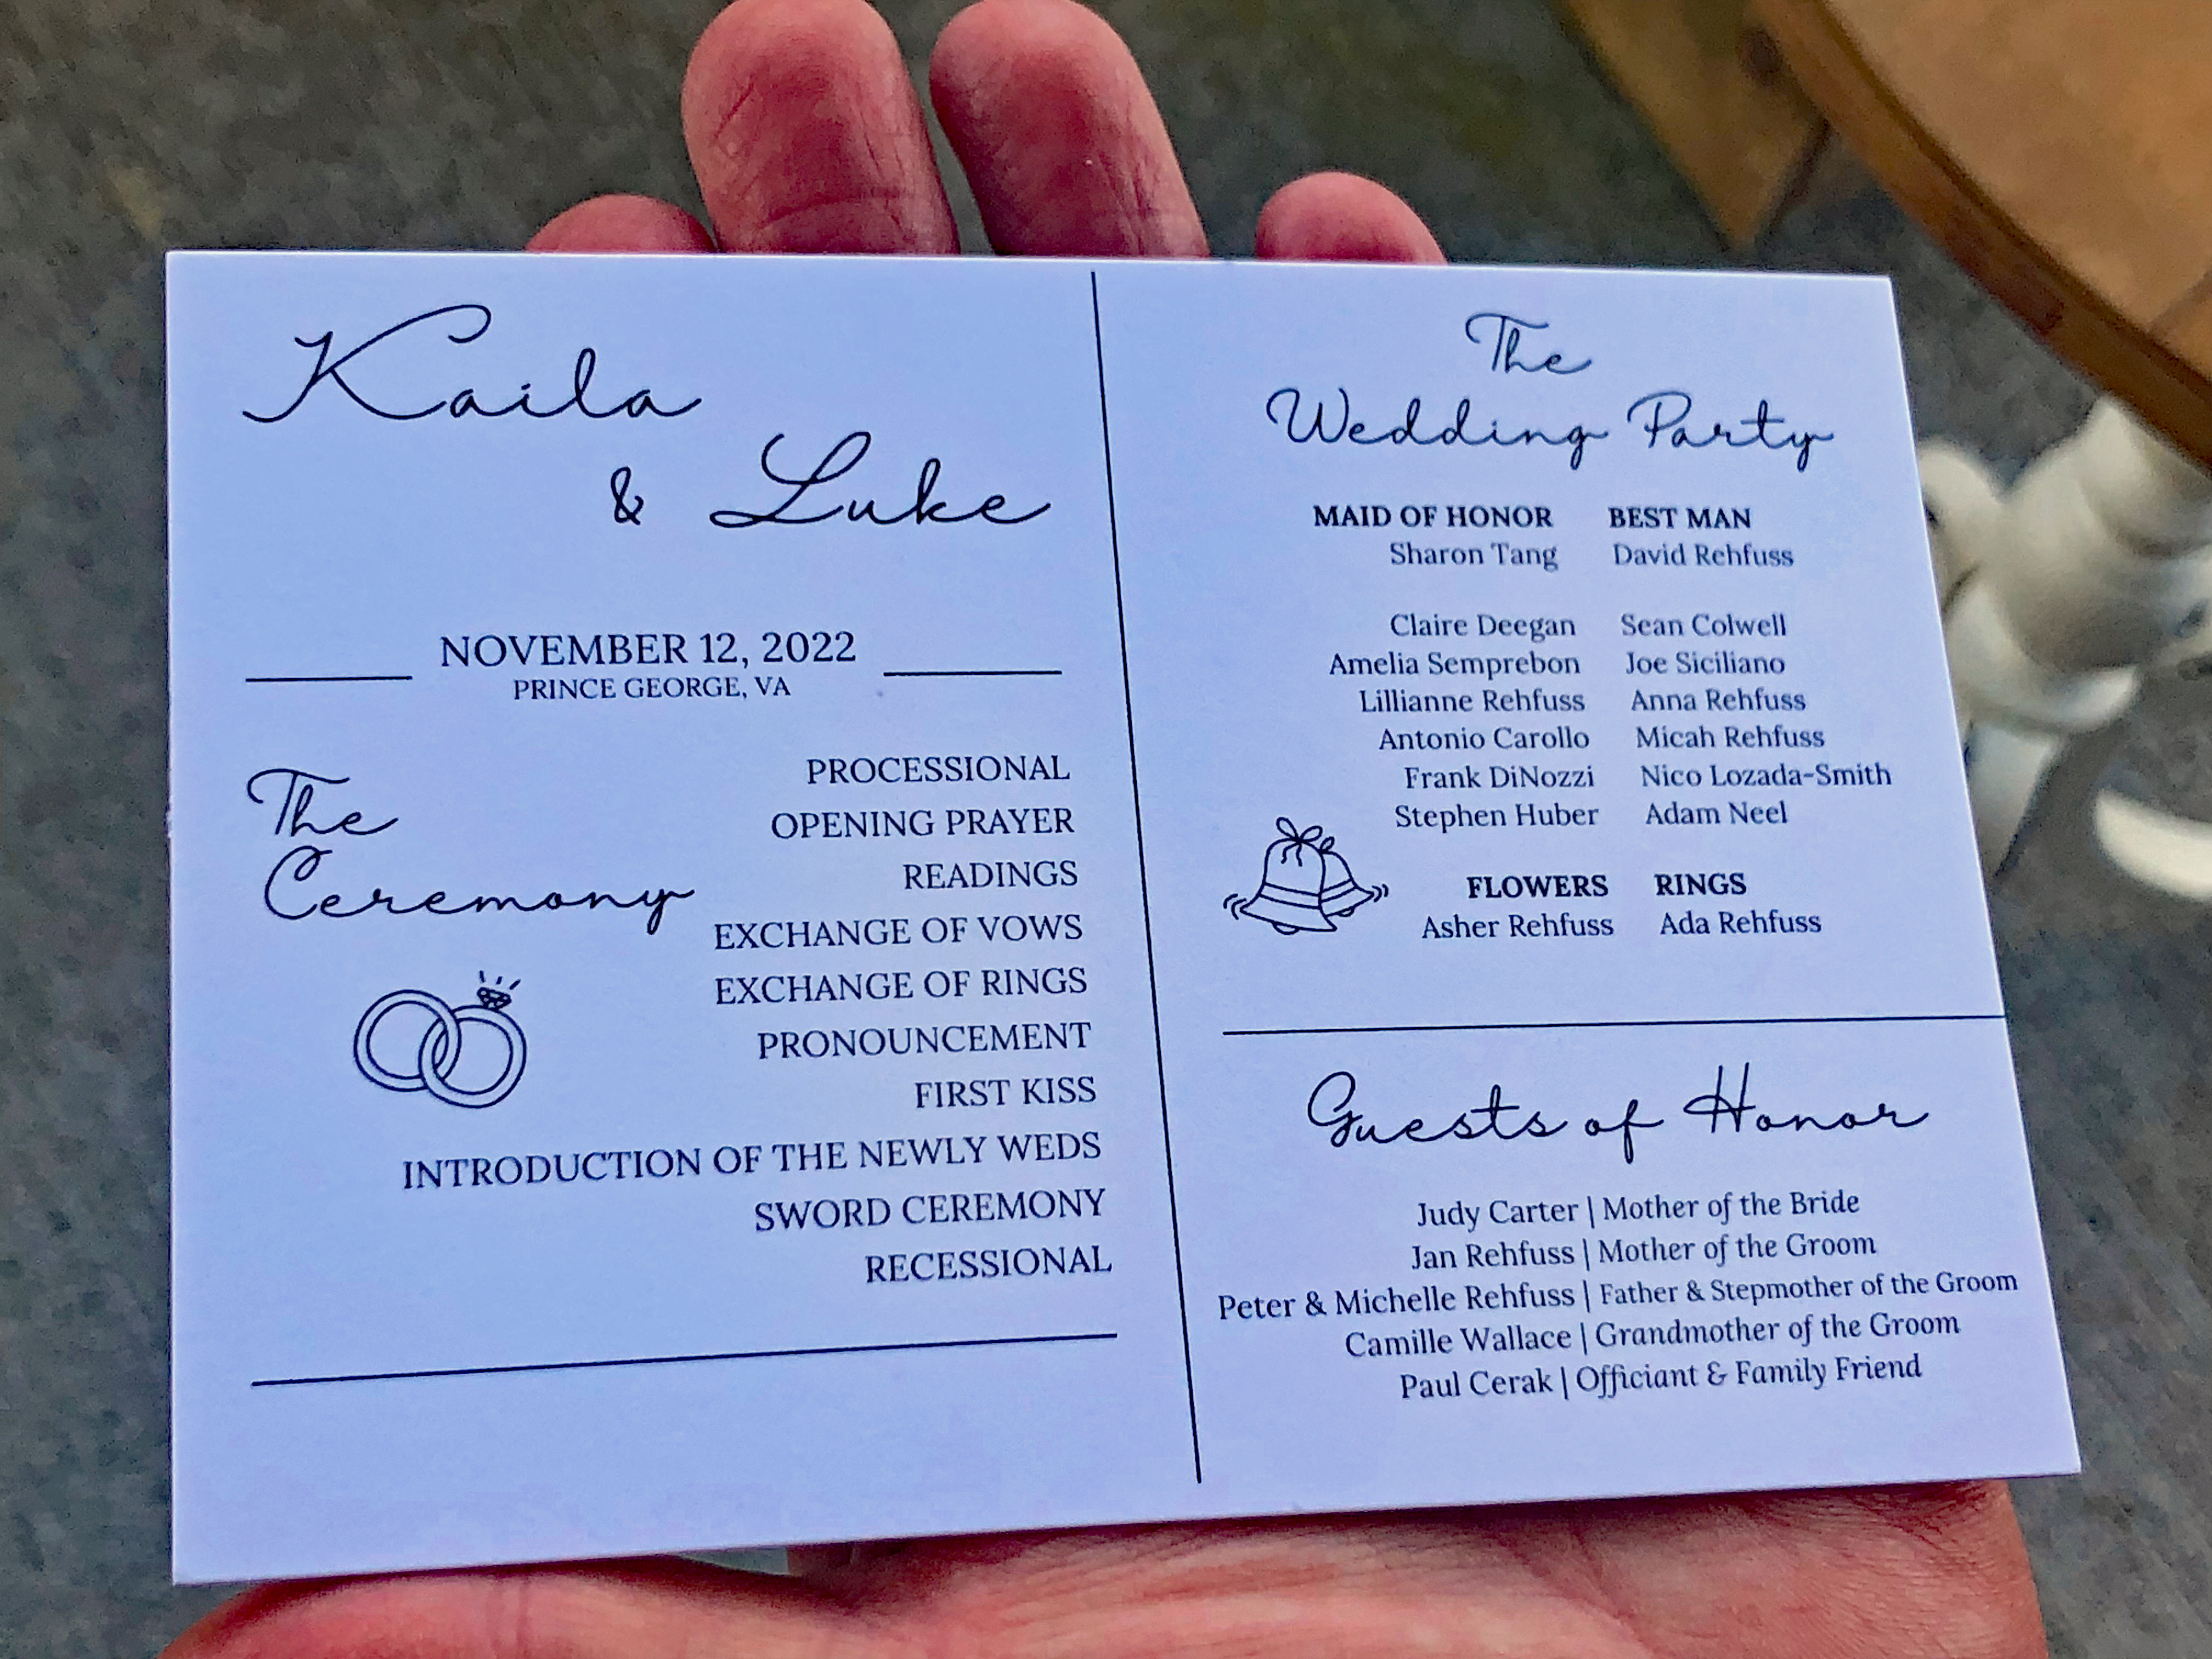 Kaila
& Luke
NOVEMBER 12, 2022
PRINCE GEORGE, VA
The
Ceremony
PROCESSIONAL
OPENING PRAYER
READINGS
EXCHANGE OF VOWS
EXCHANGE OF RINGS
PRONOUNCEMENT
FIRST KISS
INTRODUCTION OF THE NEWLY WEDS
SWORD CEREMONY
RECESSIONAL
The
Wedding Party
MAID OF HONOR BEST MAN
Sharon Tang David Rehfuss
Claire Deegan Sean Colwell
Amelia Semprebon Joe Siciliano
Lillianne Rehfuss Anna Rehfuss
Antonio Carollo Micah Rehfuss
Frank DiNozzi Nico Lozada-Smith
Stephen Huber Adam Neel
FLOWERS RINGS
Asher Rehfuss Ada Rehfuss
Guests of Honor
Judy Carter | Mother of the Bride
Jan Rehfuss | Mother of the Groom
Peter & Michelle Rehfuss | Father & Stepmother of the Groom
Camille Wallace | Grandmother of the Groom
Paul Cerak | Officiant & Family Friend